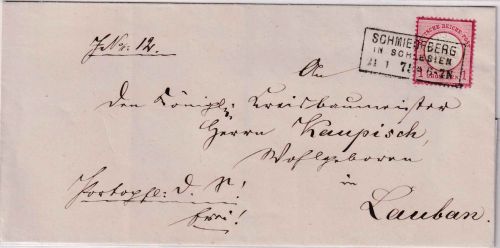 J. No. 12.
SCHMIEDEBERG
IN SCHLESIEN
DEUTSCHE REICHS-POST
1 1
An
den Königl. Kreisbaumeister
Herrn Kaupisch,
Wohlgeboren
in
Lauban.
Portopfl. D. S.!
frei!